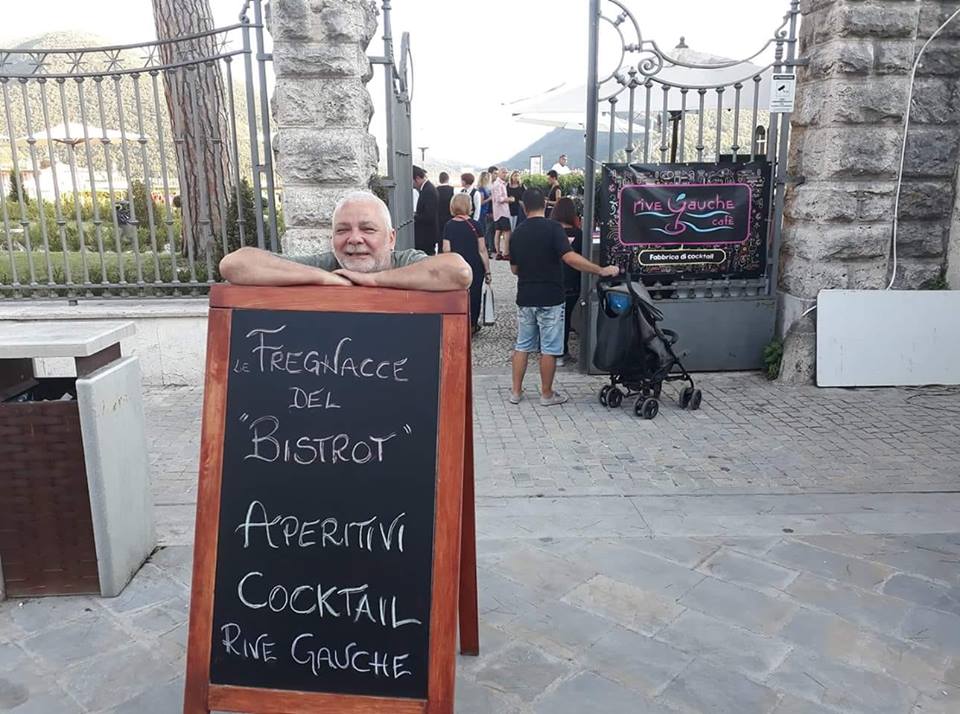 Le FREGNACCE
DEL
"BISTROT"
APERITIVI
COCKTAIL
RIVE GAUCHE
rive Gauche
cafè
Fabbrica di cocktail